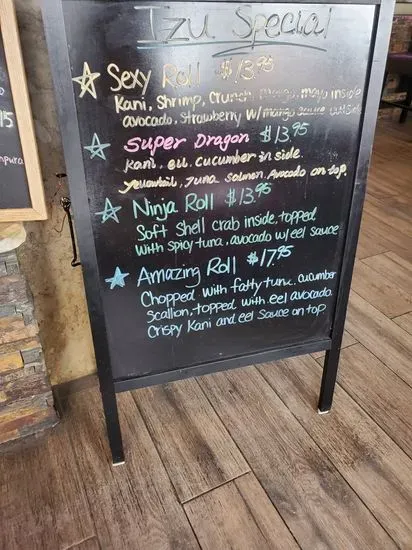 Izu Special
Sexy Roll $13.95
Kani, Shrimp, Crunch, mango, mayo inside
avocado, Strawberry w/mango sauce outside
Super Dragon $13.95
Kani, eel, cucumber in side.
yellowtail, Tuna, Salmon, Avocado on top.
Ninja Roll $13.95
Soft Shell crab inside, topped
with spicy tuna, avocado w/eel sauce
Amazing Roll $17.95
Chopped with fatty tuna, cucumber
Scallion, topped with eel avocado
Crispy Kani and eel Sauce on top
15
mpura